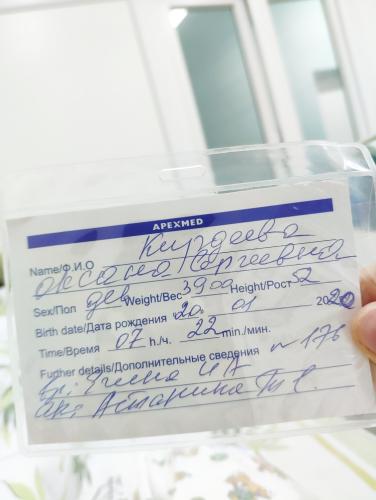 APEXMED
Name/Ф.И.О Кирдеева
Оксана Сергеевна
Sex/Пол дев Weight/Вес 3900 Height/Рост 52
Birth date/Дата рождения 20. 01 2020
Time/Время 07 h./ч. 22 min./мин.
Further details/Дополнительные сведения № 176
вр:
ак: